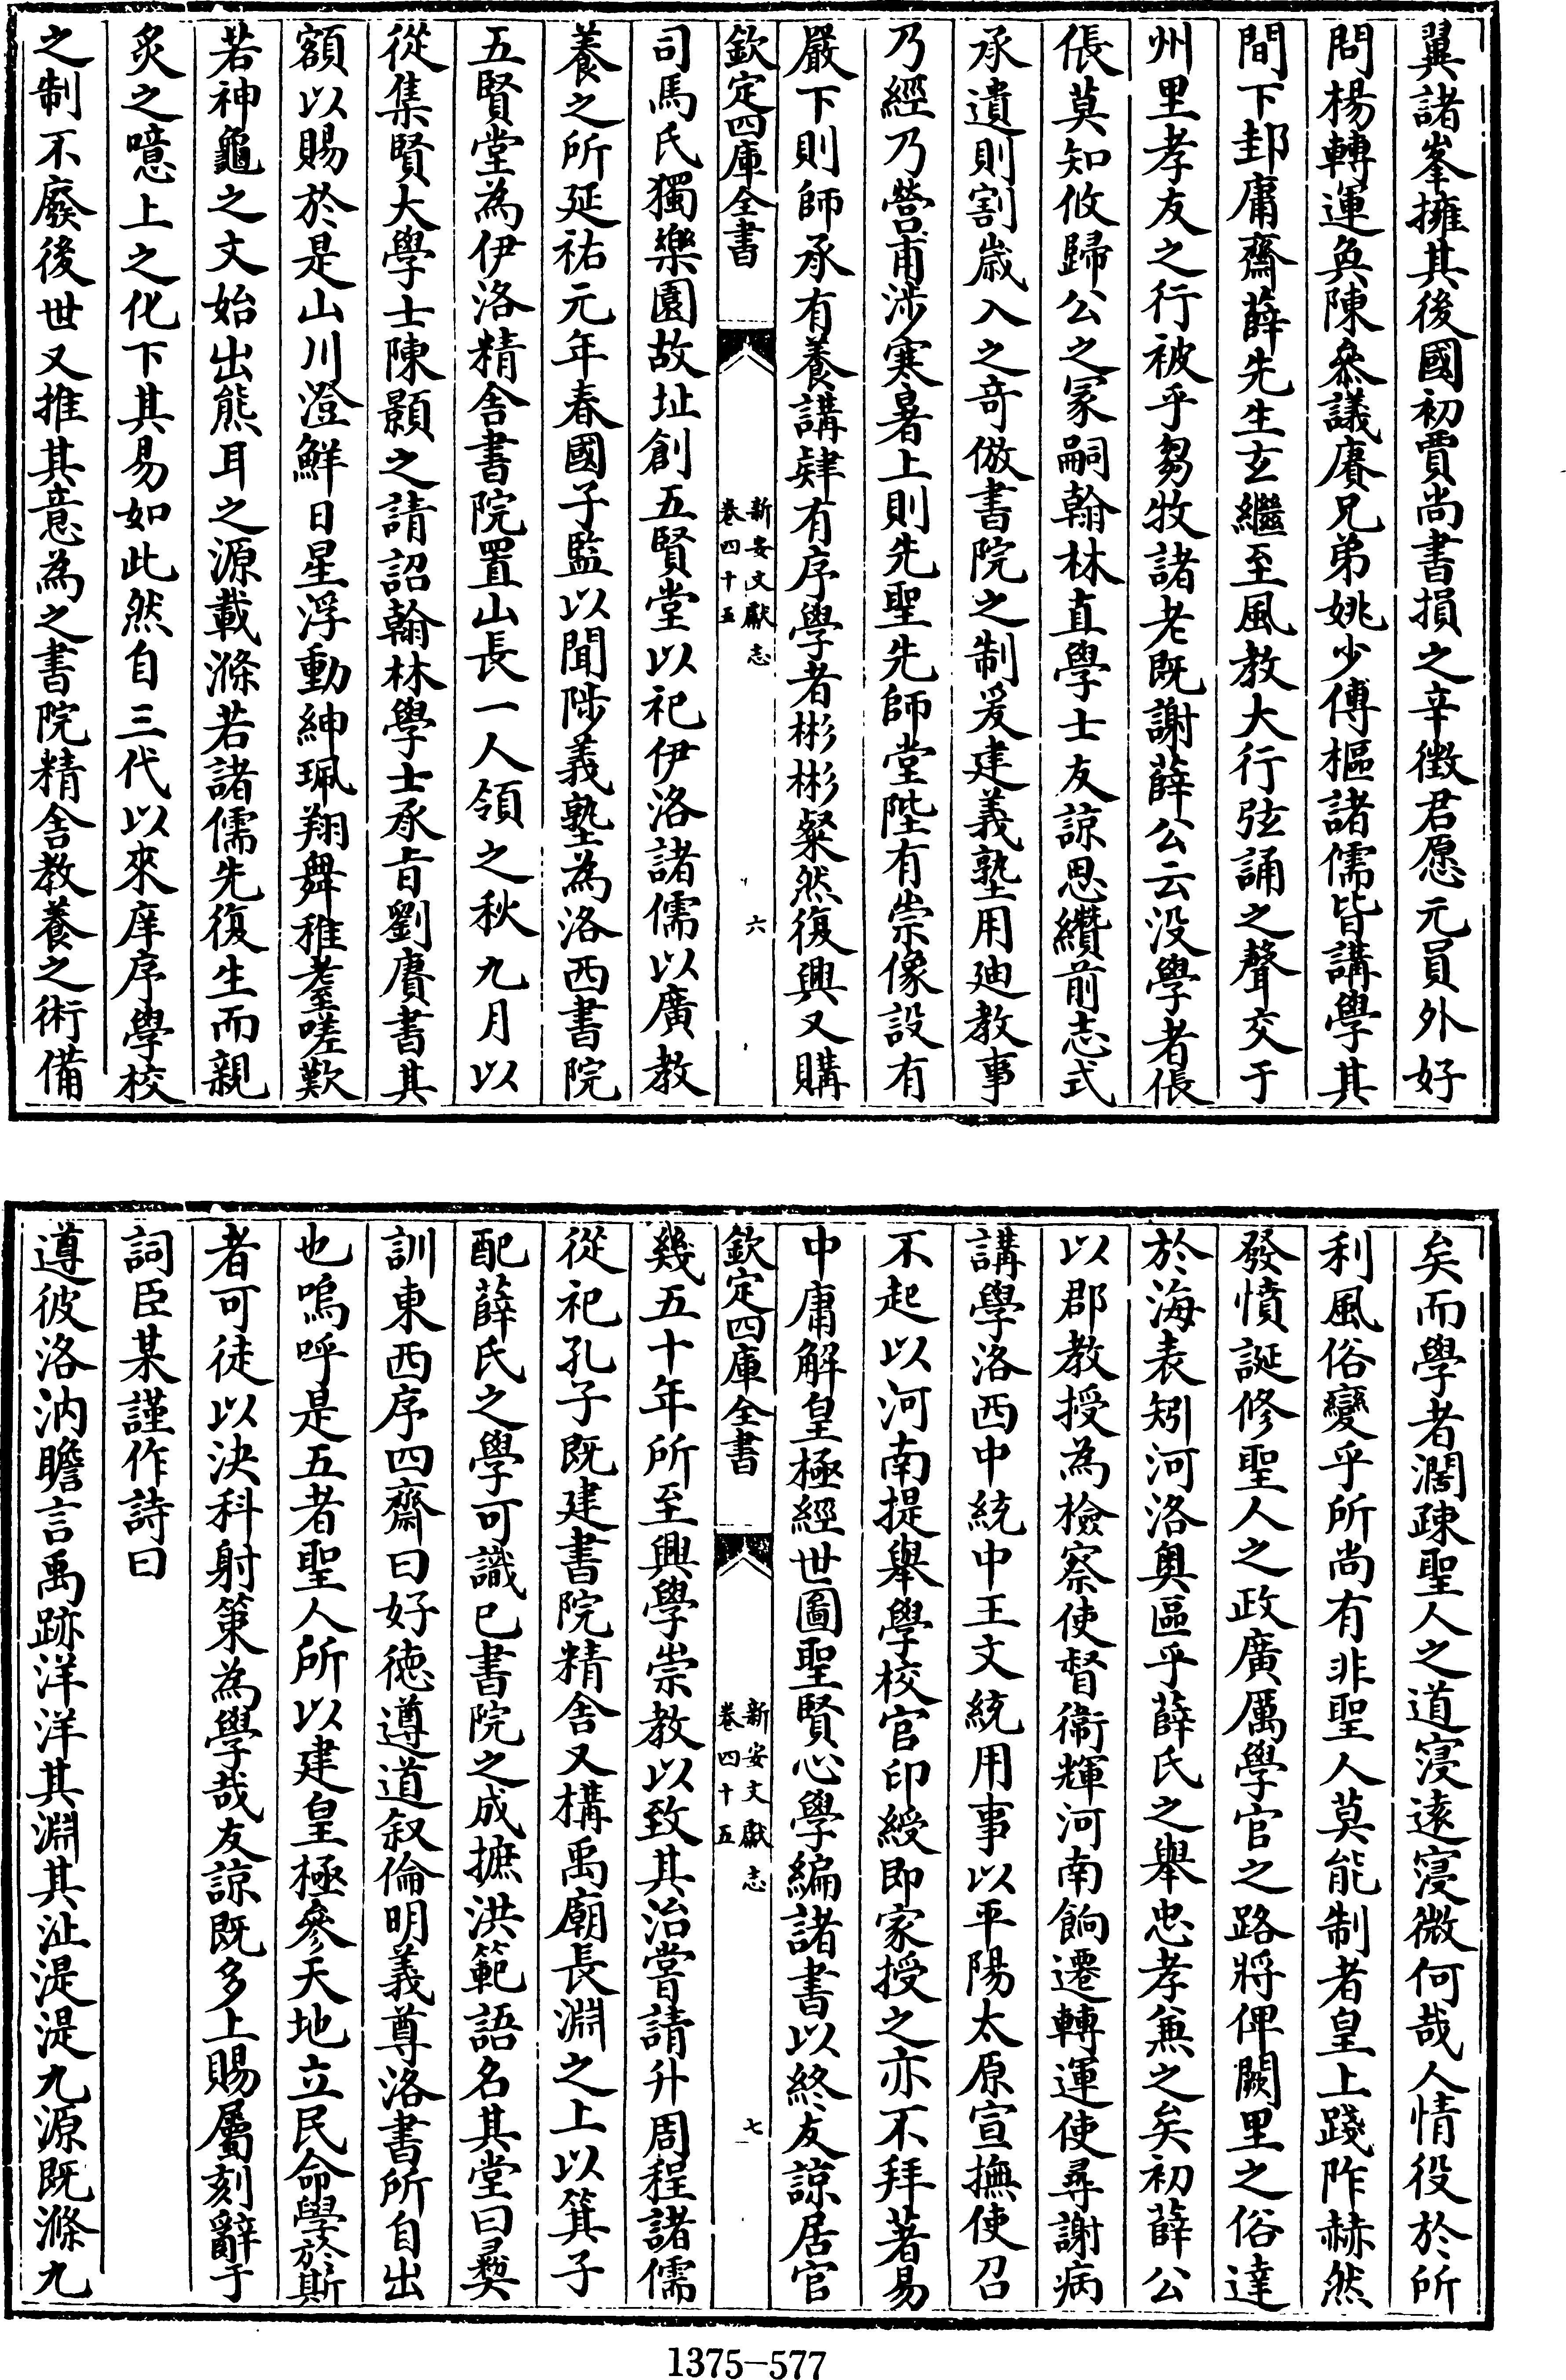 翼諸峯擁其後國初賈尚書損之辛徴君愿元員外好
問楊轉運奐陳參議賡兄弟姚少傅樞諸儒皆講學其
間下邽庸齋薛先生玄繼至風教大行弦誦之聲交于
州里孝友之行被乎芻牧諸老既謝薛公云没學者倀
倀莫知攸歸公之冢嗣翰林直學士友諒思纘前志式
承遺則割歲入之竒倣書院之制爰建義塾用廸教事
乃經乃營甫渉寒暑上則先聖先師堂陛有崇像設有
嚴下則師承有養講肄有序學者彬彬粲然復興又購
欽定四庫全書
新安文獻志
卷四十五
六
司馬氏獨樂園故址創五賢堂以祀伊洛諸儒以廣教
養之所延祐元年春國子監以聞陟義塾為洛西書院
五賢堂為伊洛精舍書院置山長一人領之秋九月以
從集賢大學士陳顥之請詔翰林學士承旨劉賡書其
額以賜於是山川澄鮮日星浮動紳珮翔舞稚耋嗟歎
若神龜之文始出熊耳之源載滌若諸儒先復生而親
炙之噫上之化下其易如此然自三代以來庠序學校
之制不廢後世又推其意為之書院精舍教養之術備
矣而學者濶疎聖人之道寖逺寖微何哉人情役於所
利風俗變乎所尚有非聖人莫能制者皇上踐阼赫然
發憤誕修聖人之政廣厲學官之路將俾闕里之俗達
於海表矧河洛奥區乎薛氏之舉忠孝兼之矣初薛公
以郡教授為檢察使督衞輝河南餉遷轉運使尋謝病
講學洛西中統中王文統用事以平陽太原宣撫使召
不起以河南提舉學校官印綬即家授之亦不拜著易
中庸解皇極經世圖聖賢心學編諸書以終友諒居官
欽定四庫全書
新安文獻志
卷四十五
七
幾五十年所至興學崇教以致其治嘗請升周程諸儒
從祀孔子既建書院精舍又構禹廟長淵之上以箕子
配薛氏之學可識已書院之成摭洪範語名其堂曰彛
訓東西序四齋曰好徳遵道叙倫明義尊洛書所自出
也嗚呼是五者聖人所以建皇極參天地立民命學於斯
者可徒以決科射策為學哉友諒既多上賜屬刻辭于
詞臣某謹作詩曰
遵彼洛汭瞻言禹跡洋洋其淵其沚湜湜九源既滌九
1375-577